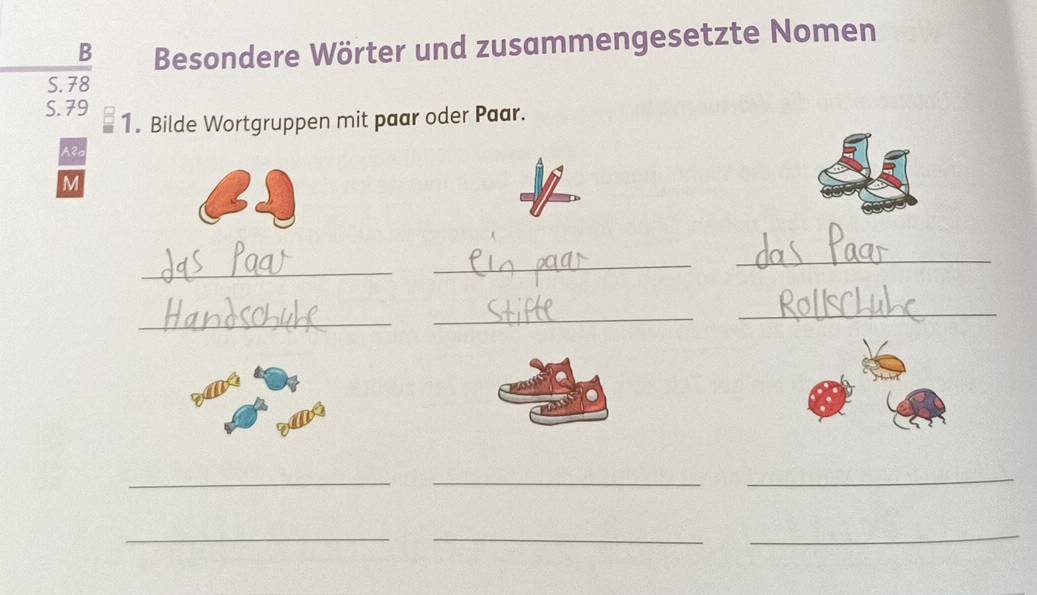 B
Besondere Wörter und zusammengesetzte Nomen
S. 78
S. 79
1. Bilde Wortgruppen mit paar oder Paar.
A2a
M
das Paar
ein paar
das Paar
Handschuhe
Stifte
Rollschuhe